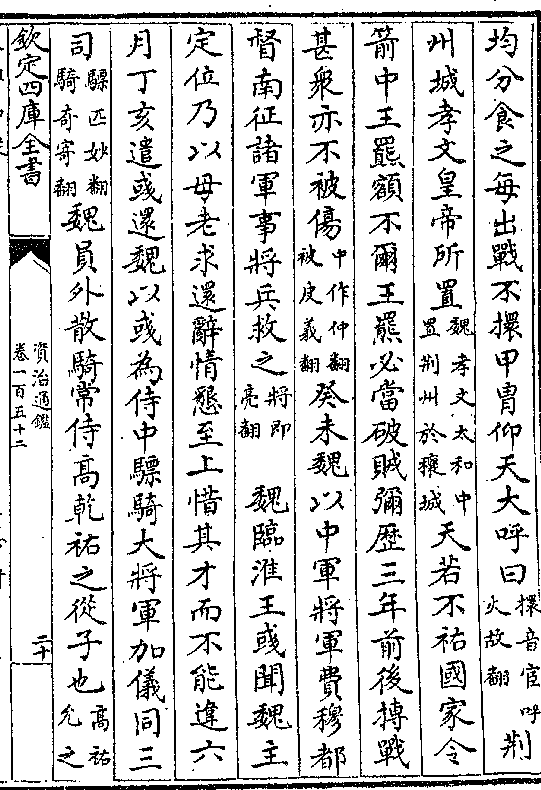 均分食之每出戰不擐甲胄仰天大呼曰擐音宦呼火故翻荆
州城孝文皇帝所置魏孝文太和中置荆州於穰城天若不祐國家令
箭中王羆額不爾王羆必當破賊彌歷三年前後搏戰
甚衆亦不被傷中作仲翻被皮義翻癸未魏以中軍將軍費穆都
督南征諸軍事將兵救之將即亮翻 魏臨淮王彧聞魏主
定位乃以母老求還辭情懇至上惜其才而不能違六
月丁亥遣彧還魏以彧為侍中驃騎大將軍加儀同三
司驃匹妙翻騎奇寄翻魏員外散騎常侍高乾祐之從子也高祐允之
欽定四庫全書
資治通鑑
卷一百五十二
二十